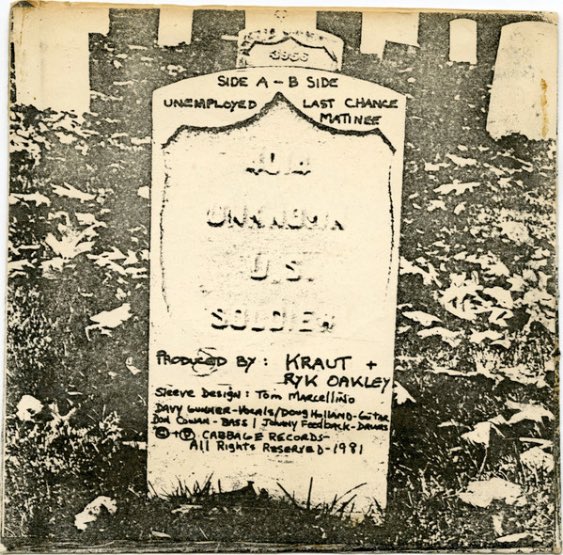 SIDE A - B SIDE
UNEMPLOYED LAST CHANCE
MATINEE
UNKNOWN
U.S.
SOLDIER
PRODUCED BY: KRAUT +
RYK OAKLEY
Sleeve Design: Tom Marcellino
Davy Gunner-Vocals/Doug Holland-Guitar
Don Cowan-Bass/Johnny Feedback-Drums
©+℗ CABBAGE RECORDS-
All Rights Reserved-1981